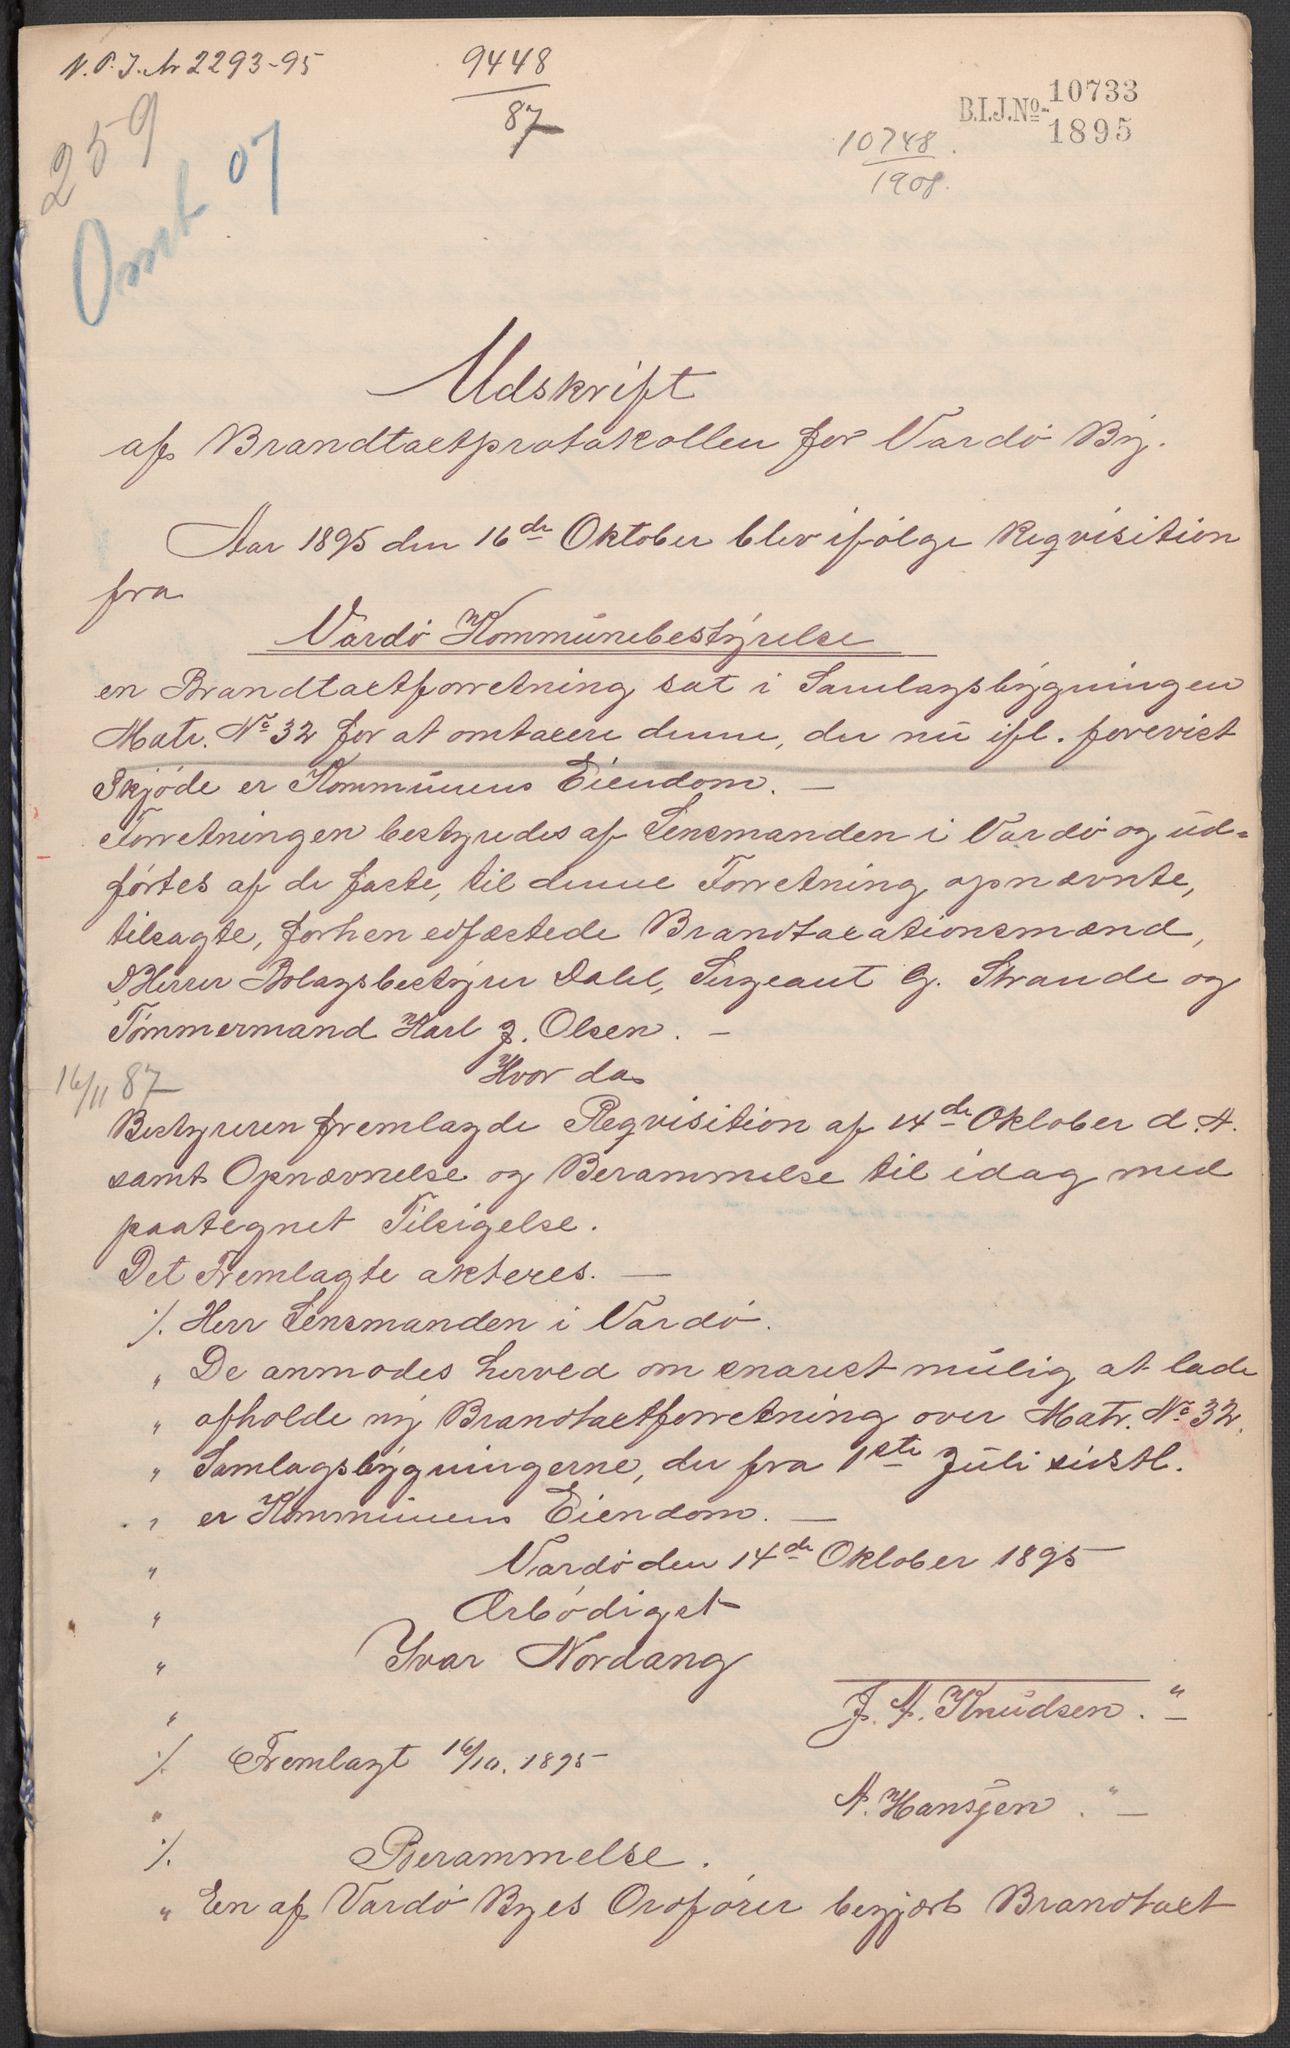 N.P.J.Nr 2293-95
9448
87
B.I.J.No- 10733
1895
10748.
1908.
259
Omt 07
Udskrift
af Brandtaxtprotokollen for Vardö By.
Aar 1895 den 16de Oktober blev ifölge Reqvisition
fra
Vardö Kommunebestyrelse
en Brandtaxtforretning sat i Samlagsbygningen
Matr. No 32 for at omtaxere denne, der nu ifl. forevist
Skjöde er Kommunens Eiendom. —
Forretningen bestyredes af Lensmanden i Vardö og ud=
förtes af de faste, til denne Forretning opnævnte,
tilsagte, forhen edfæstede Brandtaxationsmænd,
DHerrer Bolagsbestyrer Dahl, Sergeant G. Strande og
Tömmermand Karl J. Olsen. —
Hvor da
16/11 87
Bestyreren fremlagde Reqvisition af 14de Oktober d. A.
samt Opnævnelse og Berammelse til idag med
paategnet Tilsigelse.
Det Fremlagte akteres. —
./. Herr Lensmanden i Vardö.
" De anmodes herved om snarest mulig at lade
" afholde ny Brandtaxtforretning over Matr. No 32.
" Samlagsbygningerne, der fra 1ste Juli sidstl.
" er Kommunens Eiendom. —
" Vardö den 14de Oktober 1895
" Ærbödigst
" Yvar Nordang
" J. A. Knudsen. " —
./. Fremlagt 16/10. 1895
" A. Hansjen. " —
./. Berammelse.
" En af Vardö Byes Ordförer begjært Brandtaxt